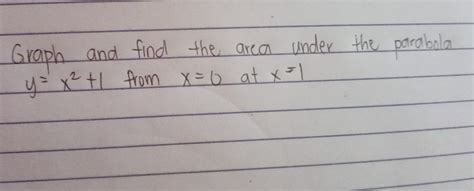 Graph and find the area under the parabola
y= x²+1 from x=0 at x=1